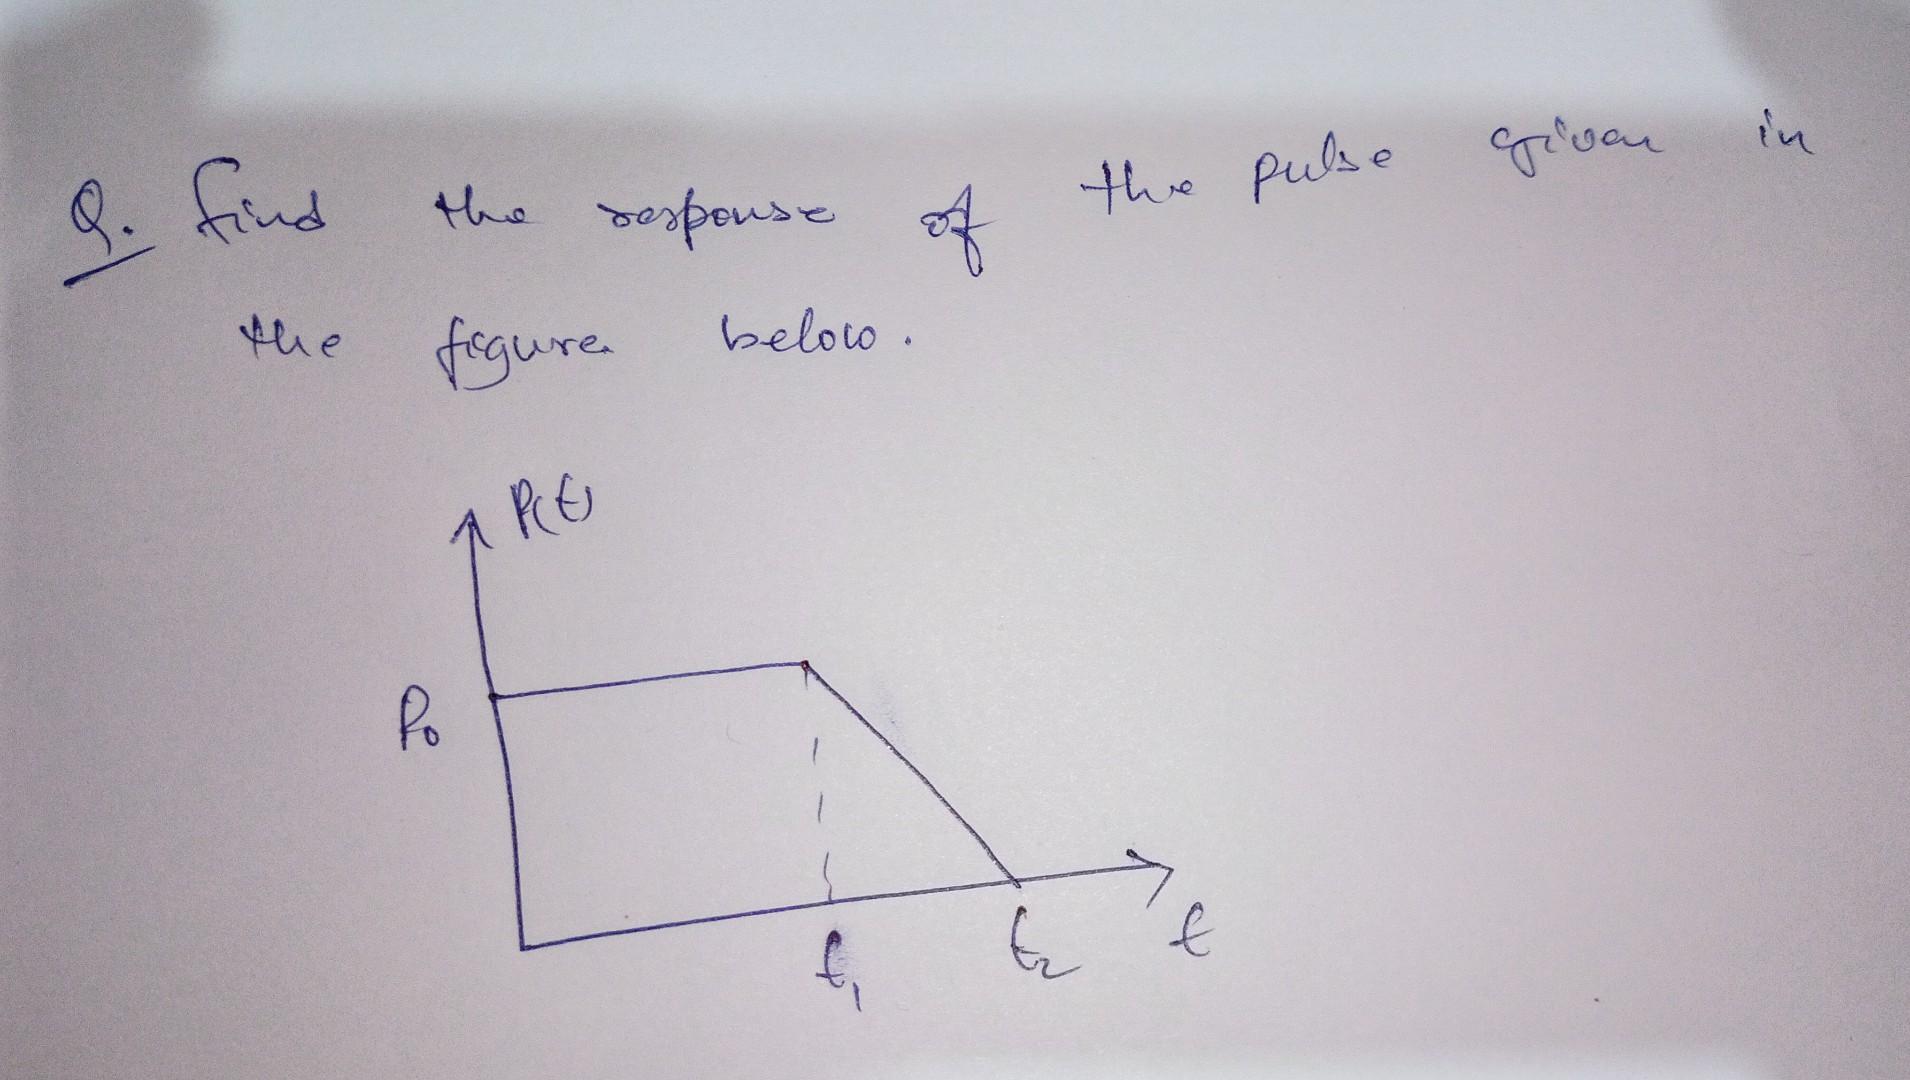 Q. find the response of the pulse given in
the figure below.
P(t)
P₀
t₁
t₂
t